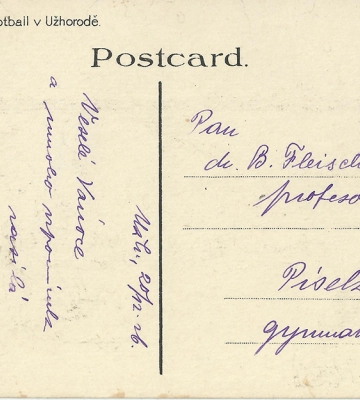 otball v Užhorodě.
Postcard.
Veselé Vánoce
a mnoho vzpomínek
zasílá
20/12. 26.
Pan
dr. B. Fleisch
profeso
Písek
gymna